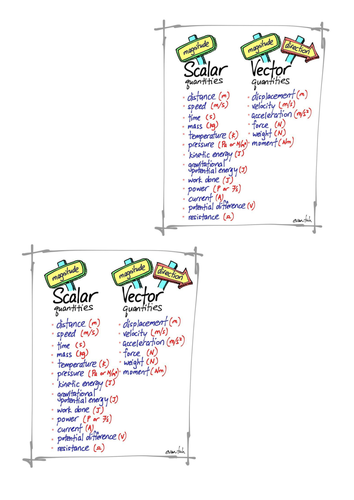 magnitude
magnitude
direction
Scalar
quantities
Vector
quantities
distance (m)
speed (m/s)
time (s)
mass (kg)
temperature (K)
pressure (Pa or N/m²)
kinetic energy (J)
gravitational
potential energy (J)
work done (J)
power (P or J/s)
current (A)
potential difference (V)
resistance (Ω)
displacement (m)
velocity (m/s)
acceleration (m/s²)
force (N)
weight (N)
moment (Nm)
magnitude
magnitude
direction
Scalar
quantities
Vector
quantities
distance (m)
speed (m/s)
time (s)
mass (kg)
temperature (K)
pressure (Pa or N/m²)
kinetic energy (J)
gravitational
potential energy (J)
work done (J)
power (P or J/s)
current (A)
potential difference (V)
resistance (Ω)
displacement (m)
velocity (m/s)
acceleration (m/s²)
force (N)
weight (N)
moment (Nm)